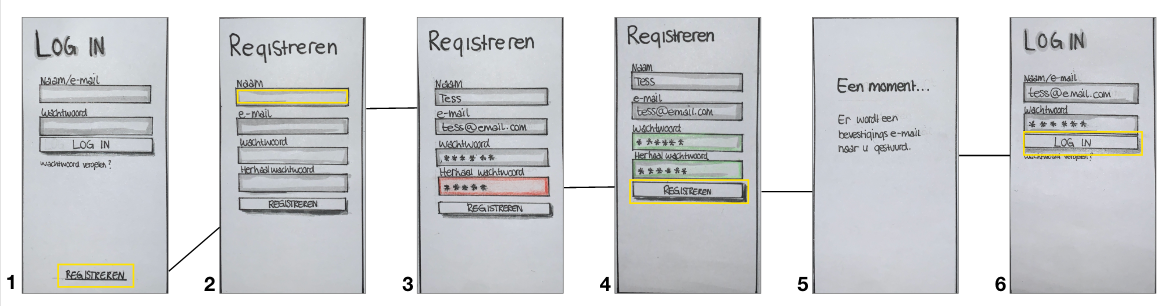 LOG IN
Naam/e-mail
Wachtwoord
LOG IN
Wachtwoord vergeten?
REGISTREREN
1
Registreren
Naam
e-mail
Wachtwoord
Herhaal wachtwoord
REGISTREREN
2
Registreren
Naam
Tess
e-mail
tess@email.com
Wachtwoord
******
Herhaal wachtwoord
*****
REGISTREREN
3
Registreren
Naam
Tess
e-mail
tess@email.com
Wachtwoord
******
Herhaal wachtwoord
******
REGISTREREN
4
Een moment...
Er wordt een
bevestigings e-mail
naar u gestuurd.
5
LOG IN
Naam/e-mail
tess@email.com
Wachtwoord
******
LOG IN
Wachtwoord vergeten?
6